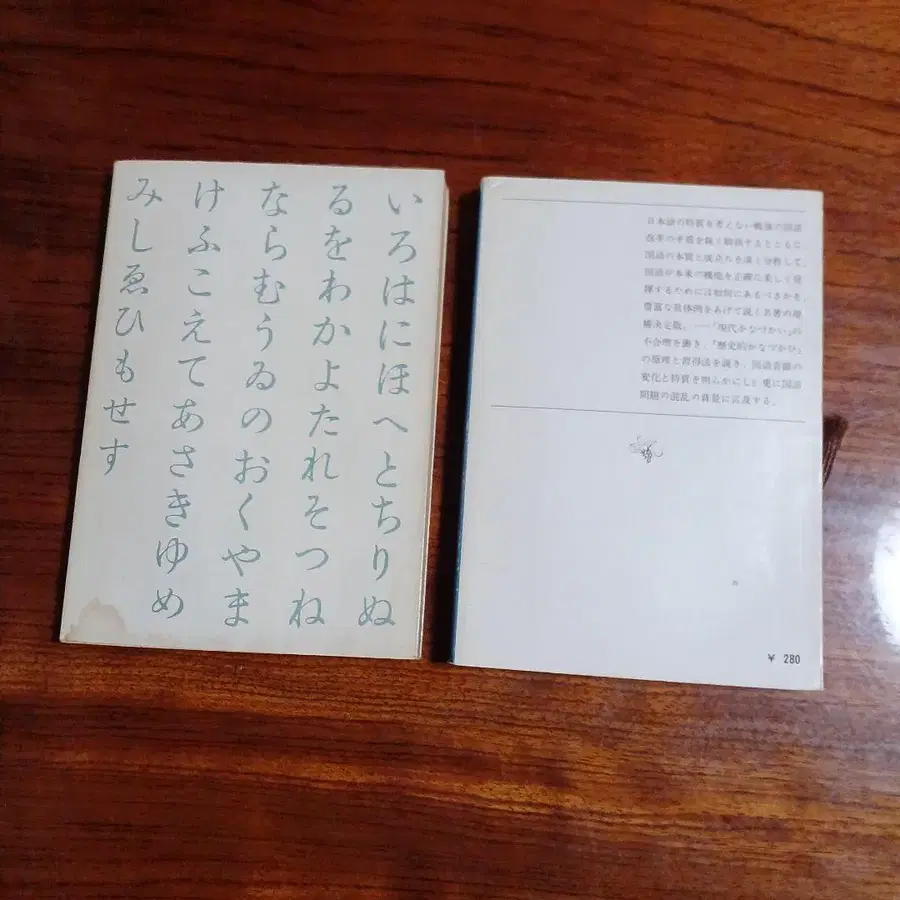 いろはにほへとちりぬ
るをわかよたれそつね
ならむうゐのおくやま
けふこえてあさきゆめ
みしゑひもせす
日本語の特質を考えない戦後の国語
改革の矛盾を鋭くするとともに、
国語の本質と成立ちを深く分析して、
国語が本来の機能を正確に美しく発
揮するためには如何にあるべきかを、
豊富な具体例をあげて説く名著の増
補決定版。――「現代かなづかい」の
不合理を衝き、「歴史的かなづかひ」
の原理と習得法を説き、国語音韻の
変化と特質を明らかにし、更に国語
問題の混乱の背景に言及する。
¥ 280